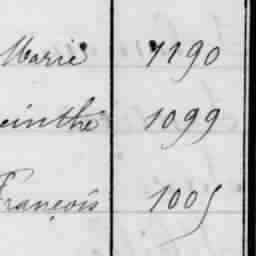 Marie 1190
cinthe 1099
François 1005